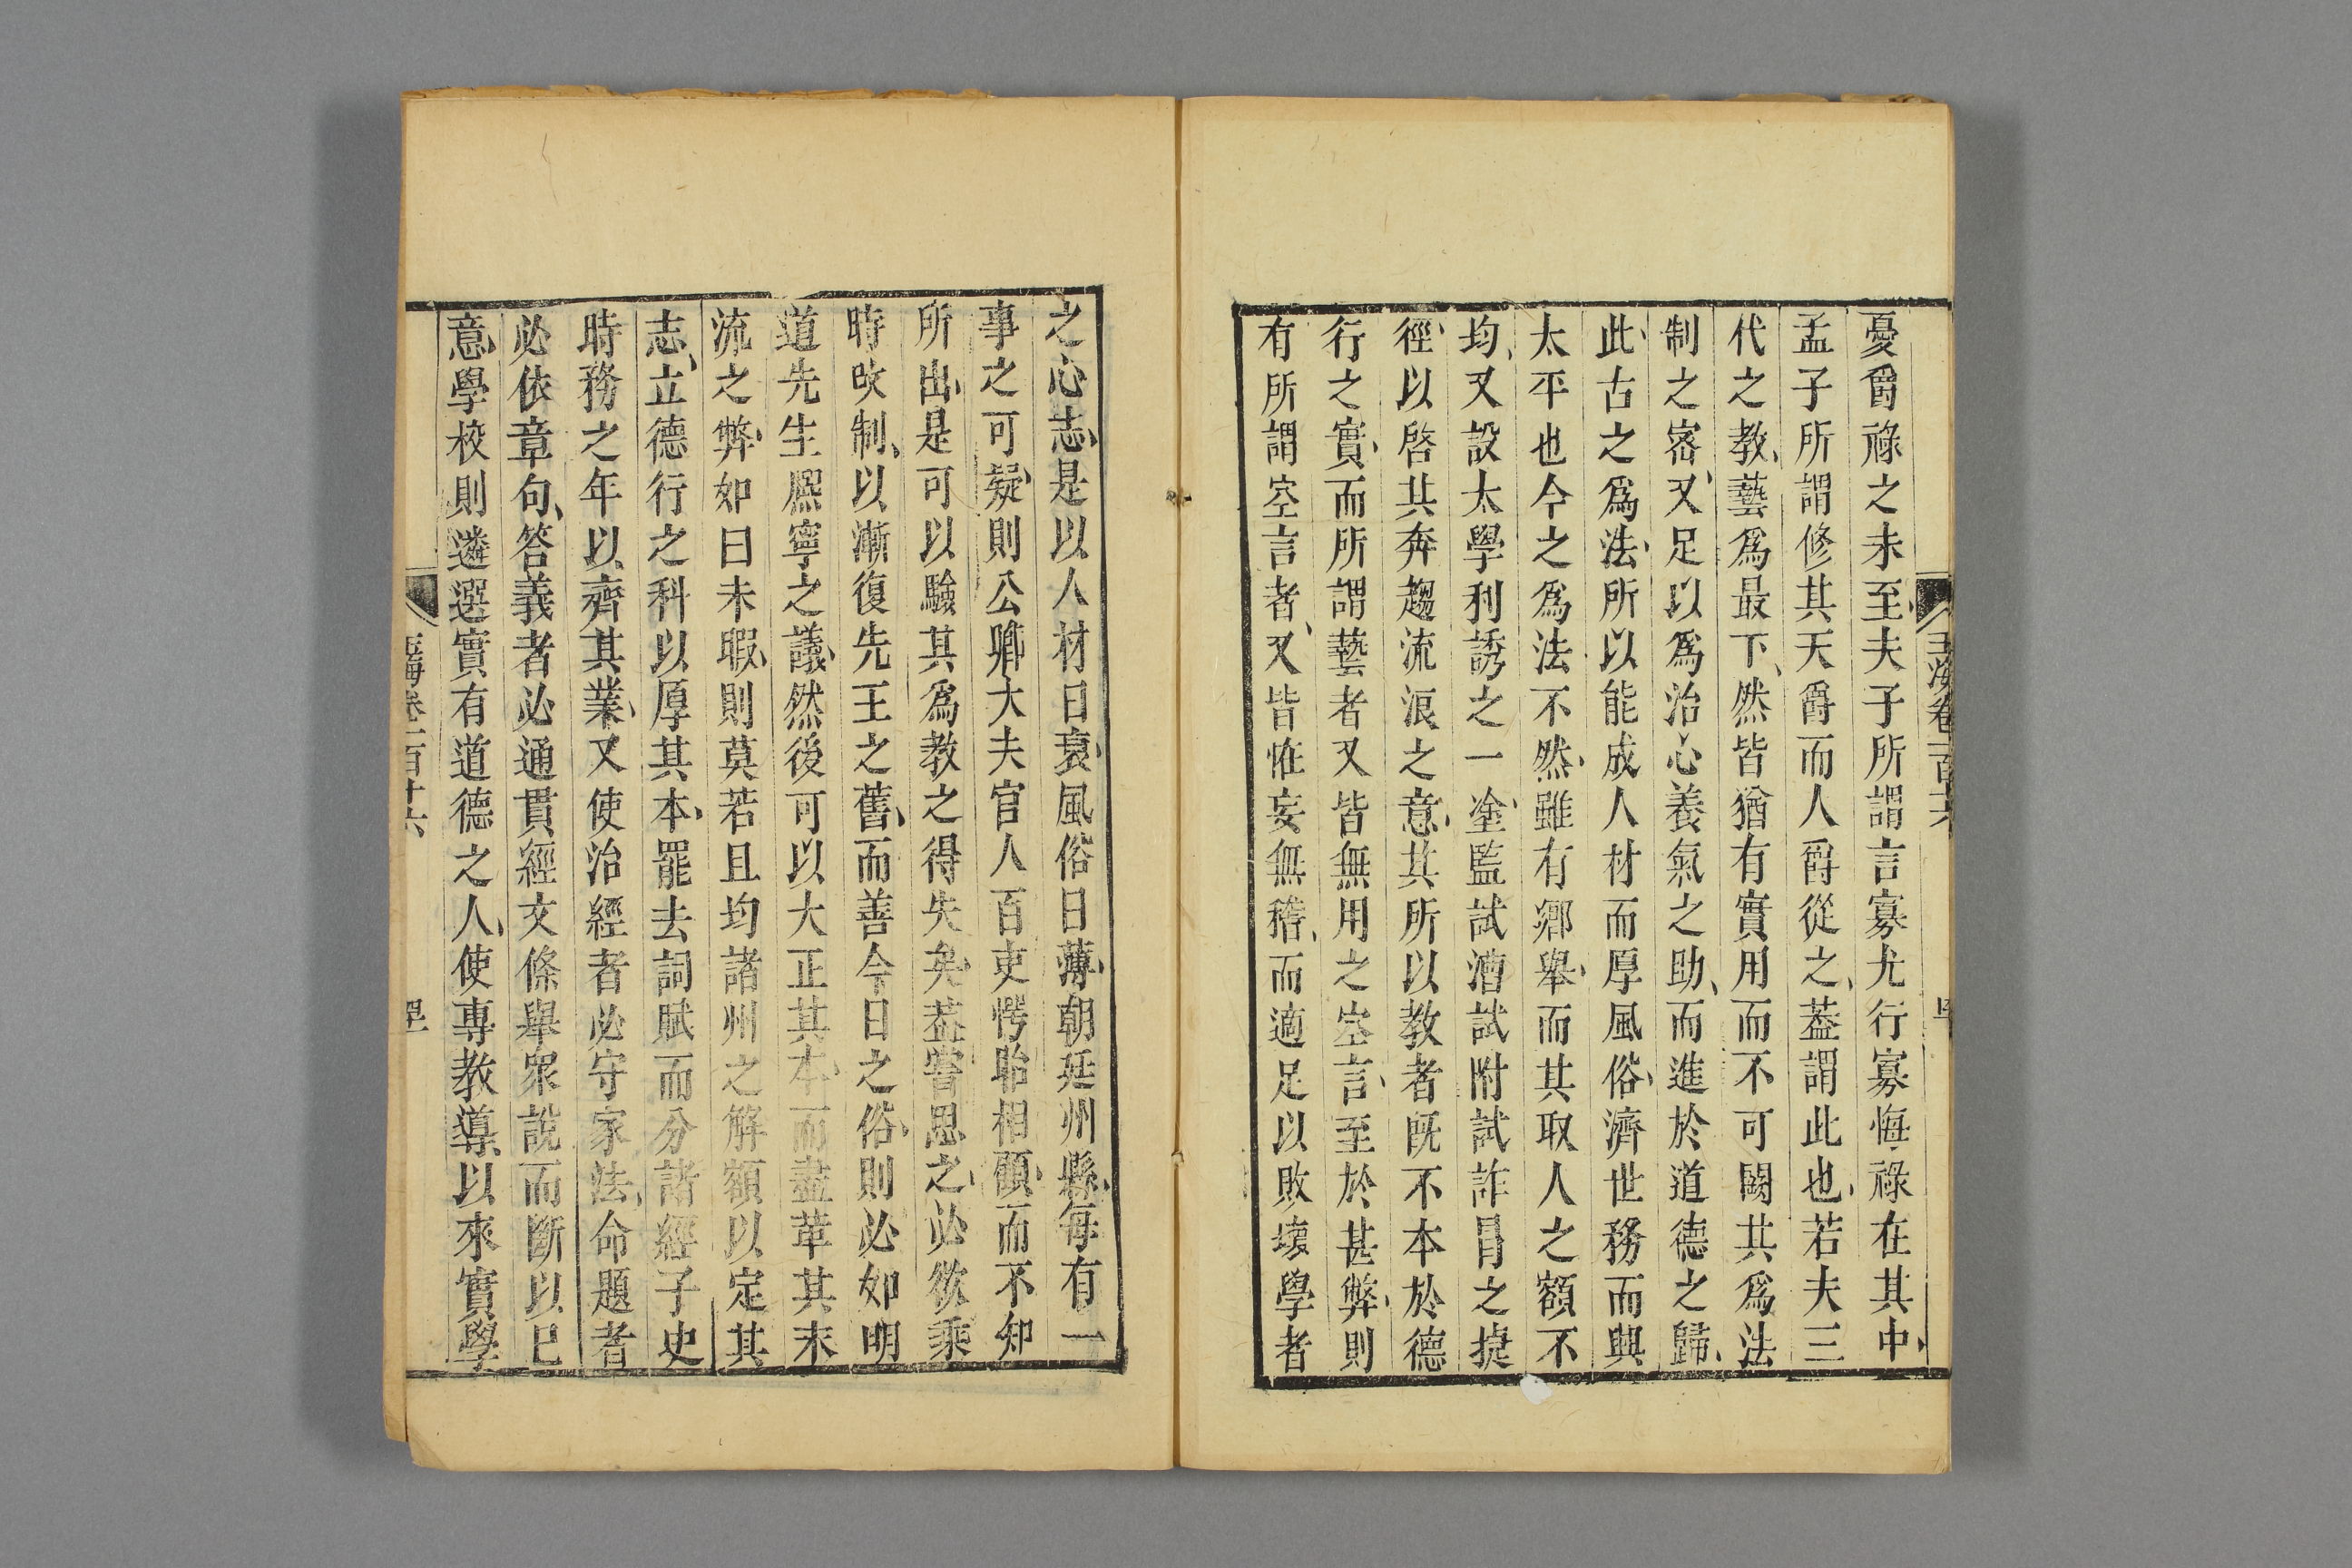 憂爵祿之未至夫子所謂言寡尤行寡悔祿在其中
孟子所謂修其天爵而人爵從之葢謂此也若夫三
代之教藝爲最下然皆猶有實用而不可闕其爲法
制之宻又足以爲治心養氣之助而進於道德之歸
此古之爲法所以能成人材而厚風俗濟世務而興
太平也今之爲法不然雖有鄉舉而其取人之額不
均又設太學利誘之一塗監試漕試附試詐冐之捷
徑以啓其奔趨流浪之意其所以教者旣不本於德
行之實而所謂藝者又皆無用之空言至於甚弊則
有所謂空言者又皆怪妄無稽而適足以敗壞學者
之心志是以人材日衰風俗日薄朝廷州縣每有一
事之可疑則公卿大夫官人百吏愕眙相顧而不知
所出是可以驗其爲教之得失矣葢嘗思之必欲乘
時改制以漸復先王之舊而善今日之俗則必如明
道先生熈寧之議然後可以大正其本而盡革其末
流之弊如曰未暇則莫若且均諸州之解額以定其
志立德行之科以厚其本罷去詞賦而分諸經子史
時務之年以齊其業又使治經者必守家法命題者
必依章句答義者必通貫經文條舉衆說而斷以已
意學校則遴選實有道德之人使專教導以來實學
玉海卷一百十六